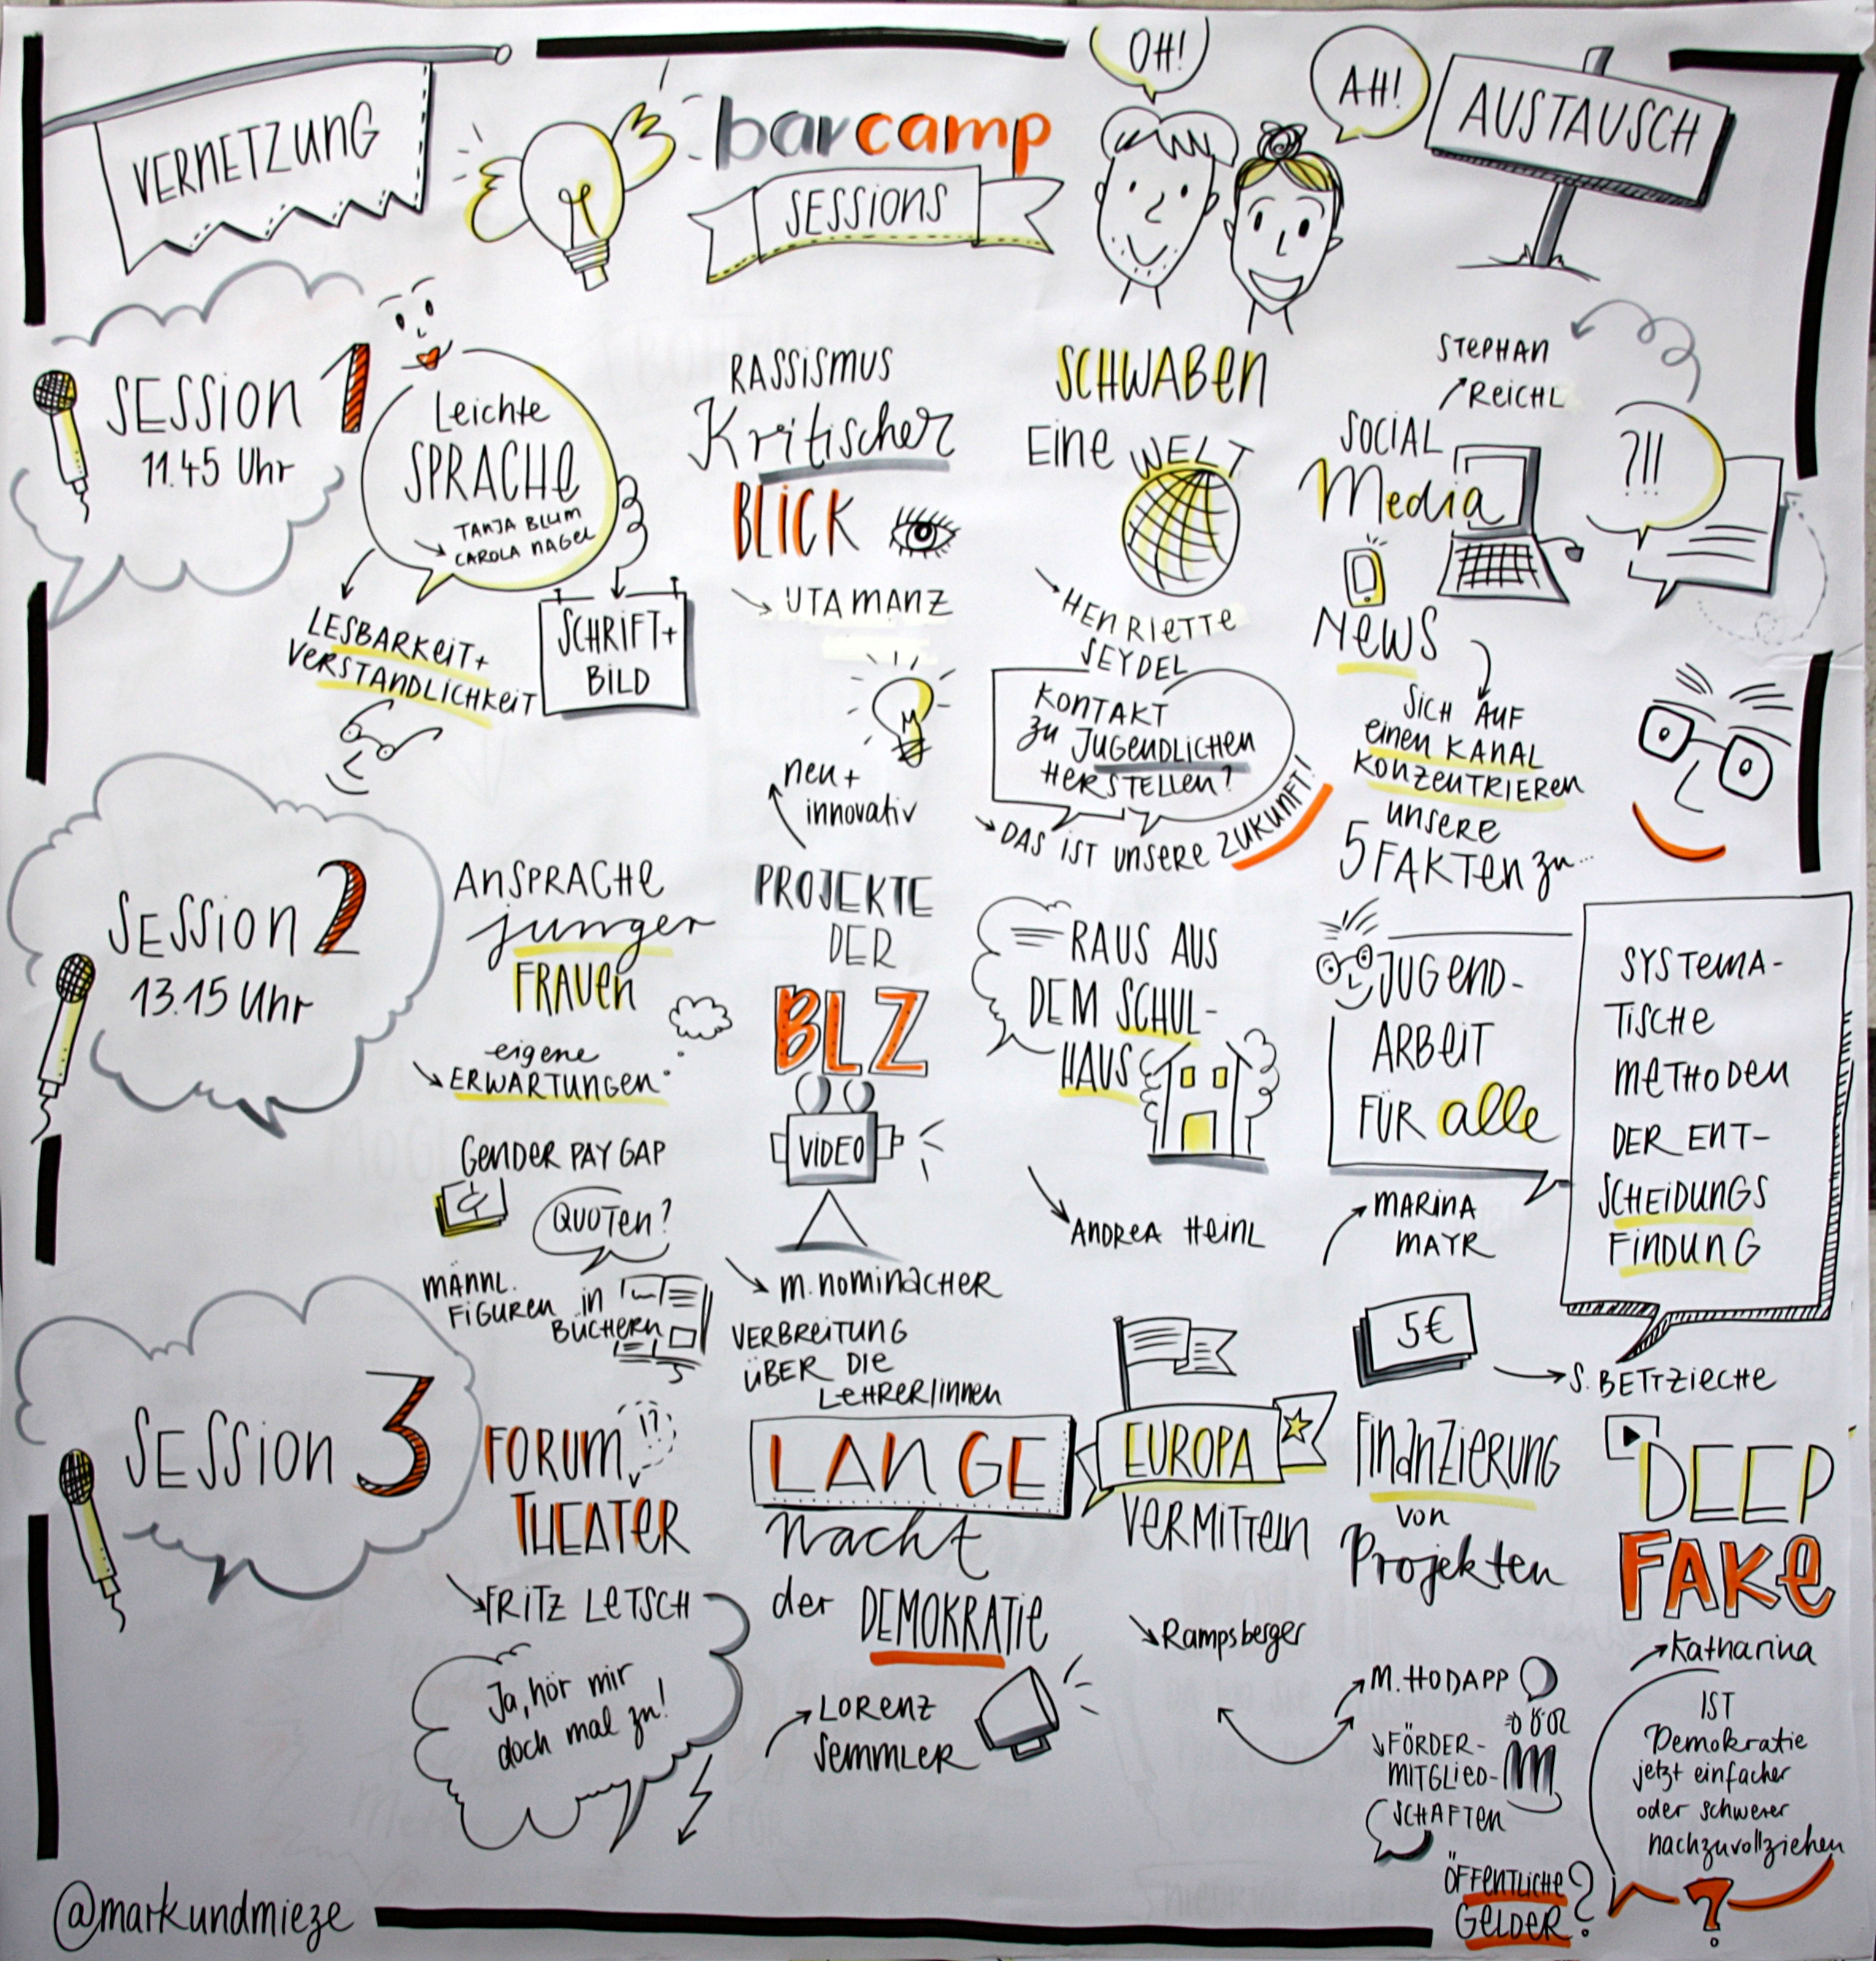 VERNETZUNG
barcamp
SESSIONS
OH!
AH!
AUSTAUSCH
SESSION 1
11.45 Uhr
Leichte
SPRACHE
TANJA BLUM
CAROLA NAGEL
LESBARKEIT+
VERSTÄNDLICHKEIT
SCHRIFT+
BILD
RASSISMUS
Kritischer
BLICK
UTA MANZ
SCHWABEN
Eine WELT
HENRIETTE
SEYDEL
KONTAKT
zu JUGENDLICHEN
HERSTELLEN?
DAS IST UNSERE ZUKUNFT!
STEPHAN
REICHL
SOCIAL
Media
NEWS
?!!
SICH AUF
einen KANAL
KONZENTRIEREN
UNSERE
5 FAKTEN zu...
SESSION 2
13.15 Uhr
ANSPRACHE
junger
FRAUEN
eigene
ERWARTUNGEN
GENDER PAY GAP
QUOTEN?
MÄNNL.
FIGUREN in
BÜCHERN
neu +
innovativ
PROJEKTE
DER
BLZ
VIDEO
M. NOMINACHER
VERBREITUNG
ÜBER DIE
LEHRER/INNEN
RAUS AUS
DEM SCHUL-
HAUS
ANDREA HEINL
JUGEND-
ARBEIT
FÜR alle
MARINA
MAYR
SYSTEMA-
TISCHE
METHODEN
DER ENT-
SCHEIDUNGS
FINDUNG
S. BETTZIECHE
SESSION 3
FORUM
!?
THEATER
FRITZ LETSCH
Ja, hör mir
doch mal zu!
LANGE
Nacht
der DEMOKRATIE
LORENZ
SEMMLER
EUROPA
VERMITTELN
Rampsberger
5€
FINANZIERUNG
von
Projekten
M. HODAPP
FÖRDER-
MITGLIED-
SCHAFTEN
ÖFFENTLICHE
GELDER?
DEEP
FAKE
Katharina
IST
Demokratie
jetzt einfacher
oder schwerer
nachzuvollziehen
?
@markundmieze